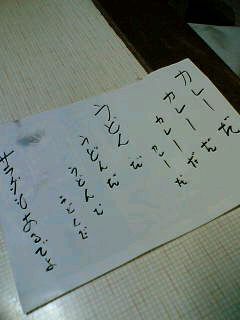 カレーだ
カレーだ
カレーだ
カレーだ
うどんだ
うどんだ
うどんだ
うどんだ
サラダもあるでよ